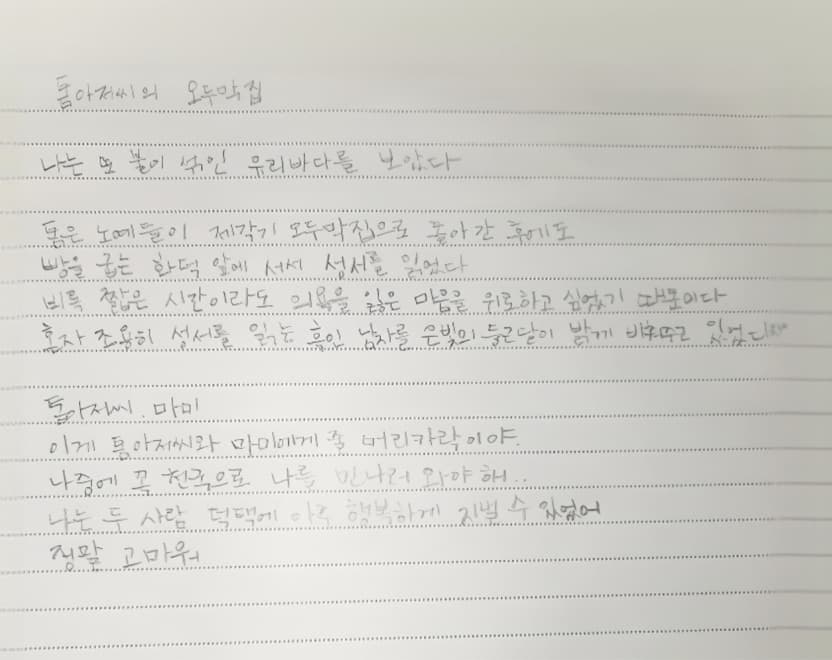 톰아저씨의 오두막집
나는 또 불이 섞인 유리바다를 보았다
톰은 노예들이 제각기 오두막집으로 돌아간 후에도
빵을 굽는 화덕 앞에 서서 성서를 읽었다
비록 짧은 시간이라도 의욕을 잃은 마음을 위로하고 싶었기 때문이다
혼자 조용히 성서를 읽는 흑인 남자를 은빛의 둥근달이 밝게 비춰주고 있었다
톰아저씨. 마미
이게 톰아저씨와 마미에게 줄 머리카락이야.
나중에 꼭 천국으로 나를 만나러 와야 해..
나는 두 사람 덕택에 아주 행복하게 지낼 수 있었어
정말 고마워